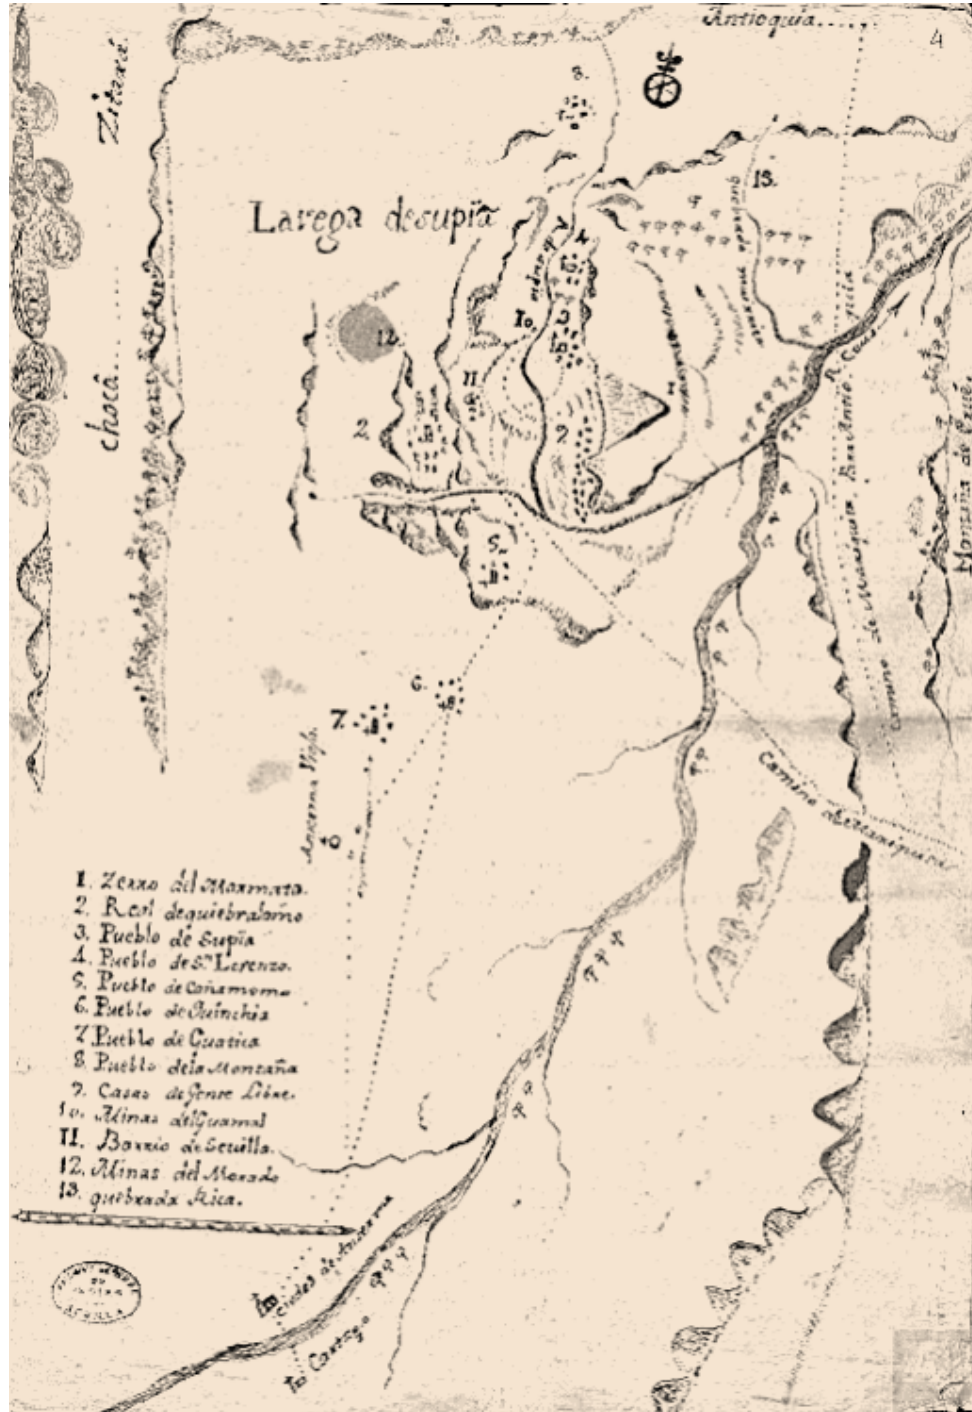 Antioquia......
4
Zitará
8.
13.
La vega de supia
4
3
10.
12.
11
2
9
R. Cau
chocâ........
5.
6.
7.
Anserma Vieja
Camino
Camino de
1. Zerro del Marmato.
2. Real de quiebralomo
3. Pueblo de Supia
4. Pueblo de Sn. Lorenzo.
5. Pueblo de Cañamomo
6. Pueblo de Quinchia
7. Pueblo de Guatica
8. Pueblo de la Montaña
9. Casas de Gente Libre.
10. Minas del Guamal
11. Barrio de Sevilla.
12. Minas del Morado
13. quebrada Rica.
Ciudad de Anserma
Cartago